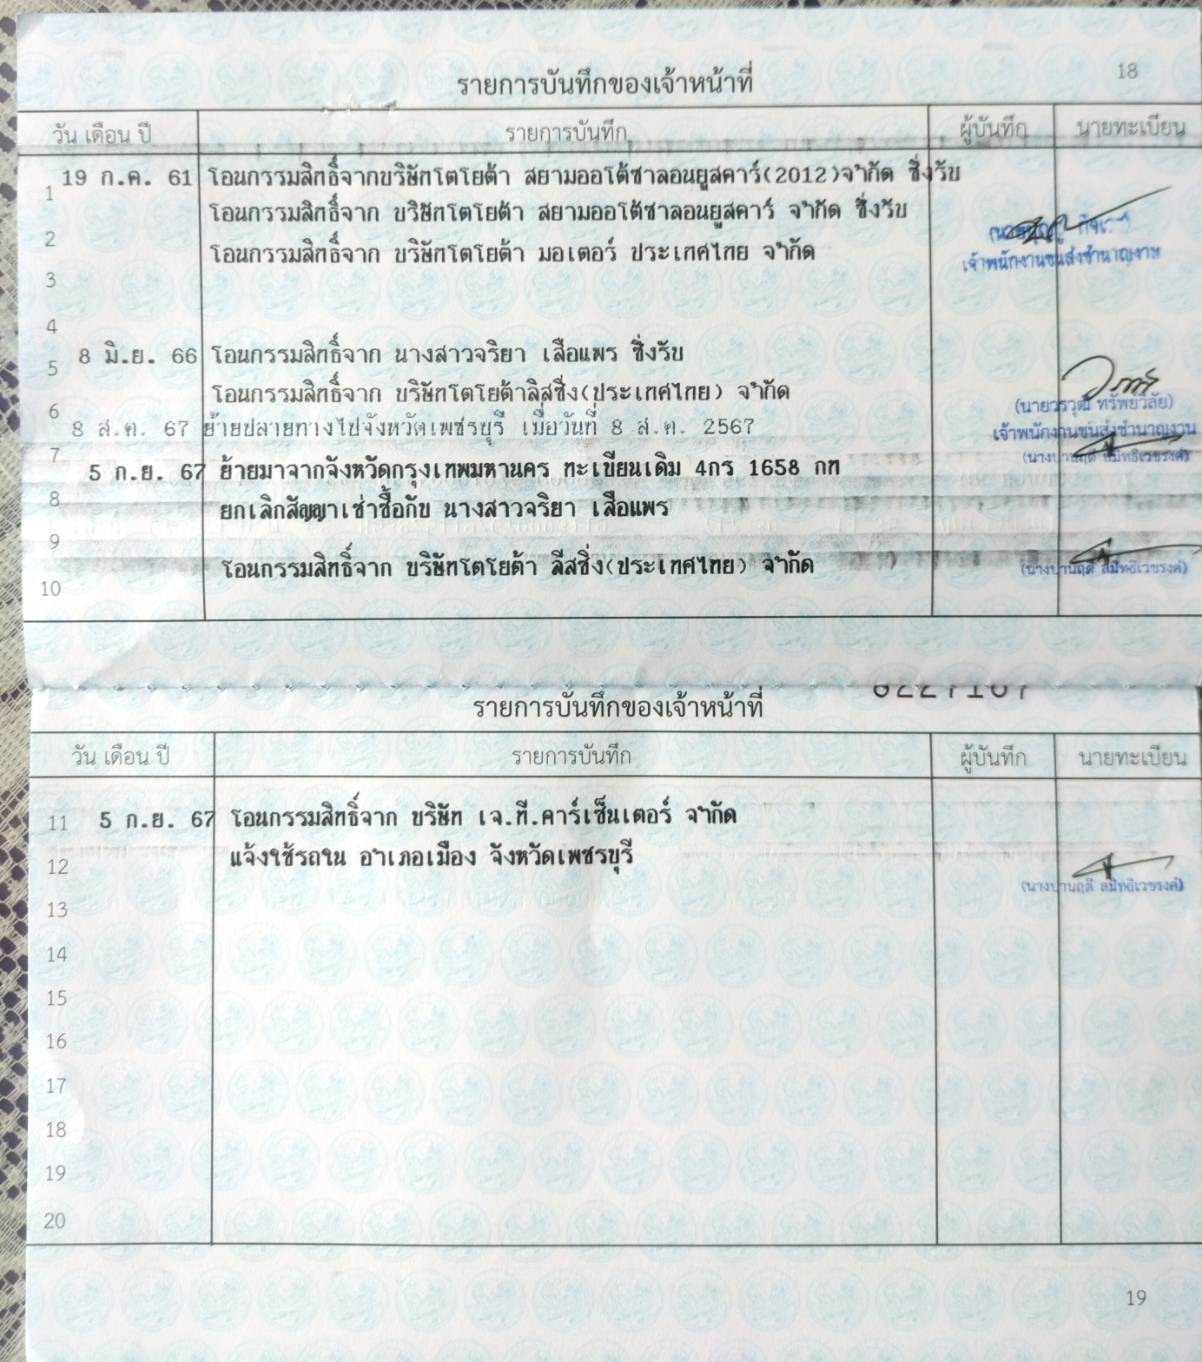 18
รายการบันทึกของเจ้าหน้าที่
วัน เดือน ปี รายการบันทึก ผู้บันทึก นายทะเบียน
1 19 ก.ค. 61 โอนกรรมสิทธิ์จากบริษัทโตโยต้า สยามออโต้ซาลอนยูสคาร์(2012)จำกัด ซึ่งรับ
โอนกรรมสิทธิ์จาก บริษัทโตโยต้า สยามออโต้ซาลอนยูสคาร์ จำกัด ซึ่งรับ
2 โอนกรรมสิทธิ์จาก บริษัทโตโยต้า มอเตอร์ ประเทศไทย จำกัด
เจ้าพนักงานขนส่งชำนาญงาน
3
4
5 8 มิ.ย. 66 โอนกรรมสิทธิ์จาก นางสาวจริยา เสือแพร ซึ่งรับ
โอนกรรมสิทธิ์จาก บริษัทโตโยต้าลิสซิ่ง(ประเทศไทย) จำกัด
(นายวรวุฒิ ทรัพย์วิลัย)
6 8 ส.ค. 67 ย้ายปลายทางไปจังหวัดเพชรบุรี เมื่อวันที่ 8 ส.ค. 2567
เจ้าพนักงานขนส่งชำนาญงาน
7 5 ก.ย. 67 ย้ายมาจากจังหวัดกรุงเทพมหานคร ทะเบียนเดิม 4กร 1658 กท
8 ยกเลิกสัญญาเช่าซื้อกับ นางสาวจริยา เสือแพร
9
โอนกรรมสิทธิ์จาก บริษัทโตโยต้า ลีสซิ่ง(ประเทศไทย) จำกัด
10
รายการบันทึกของเจ้าหน้าที่
วัน เดือน ปี รายการบันทึก ผู้บันทึก นายทะเบียน
11 5 ก.ย. 67 โอนกรรมสิทธิ์จาก บริษัท เจ.ที.คาร์เซ็นเตอร์ จำกัด
12 แจ้งใช้รถใน อำเภอเมือง จังหวัดเพชรบุรี
13
14
15
16
17
18
19
20
19